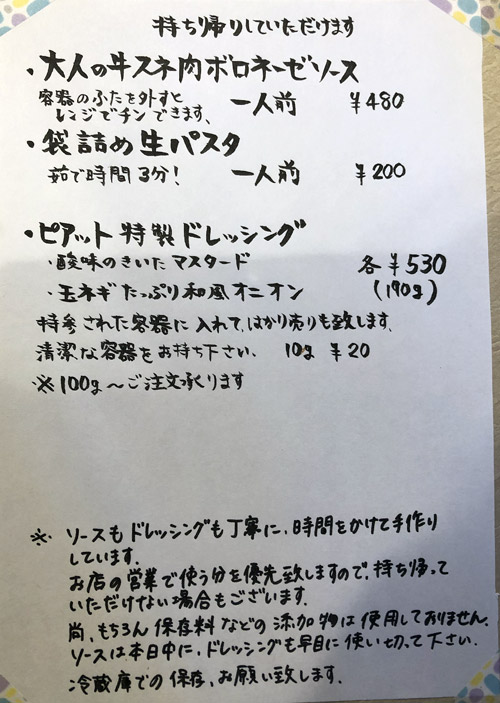 持ち帰りしていただけます
・大人の牛スネ肉ボロネーゼソース
容器のふたを外すと
レンジでチンできます、 一人前 ¥480
・袋詰め生パスタ
茹で時間3分! 一人前 ¥200
・ピアット特製ドレッシング
・酸味のきいたマスタード 各¥530
・玉ネギたっぷり和風オニオン (190g)
持参された容器に入れて、はかり売りも致します。
清潔な容器をお持ち下さい、 10g ¥20
※100g〜ご注文承ります
※ ソースもドレッシングも丁寧に、時間をかけて手作り
しています。
お店の営業で使う分を優先致しますので、持ち帰って
いただけない場合もございます。
尚、もちろん保存料などの添加物は使用しておりません。
ソースは本日中に、ドレッシングも早目に使い切って下さい。
冷蔵庫での保存、お願い致します。